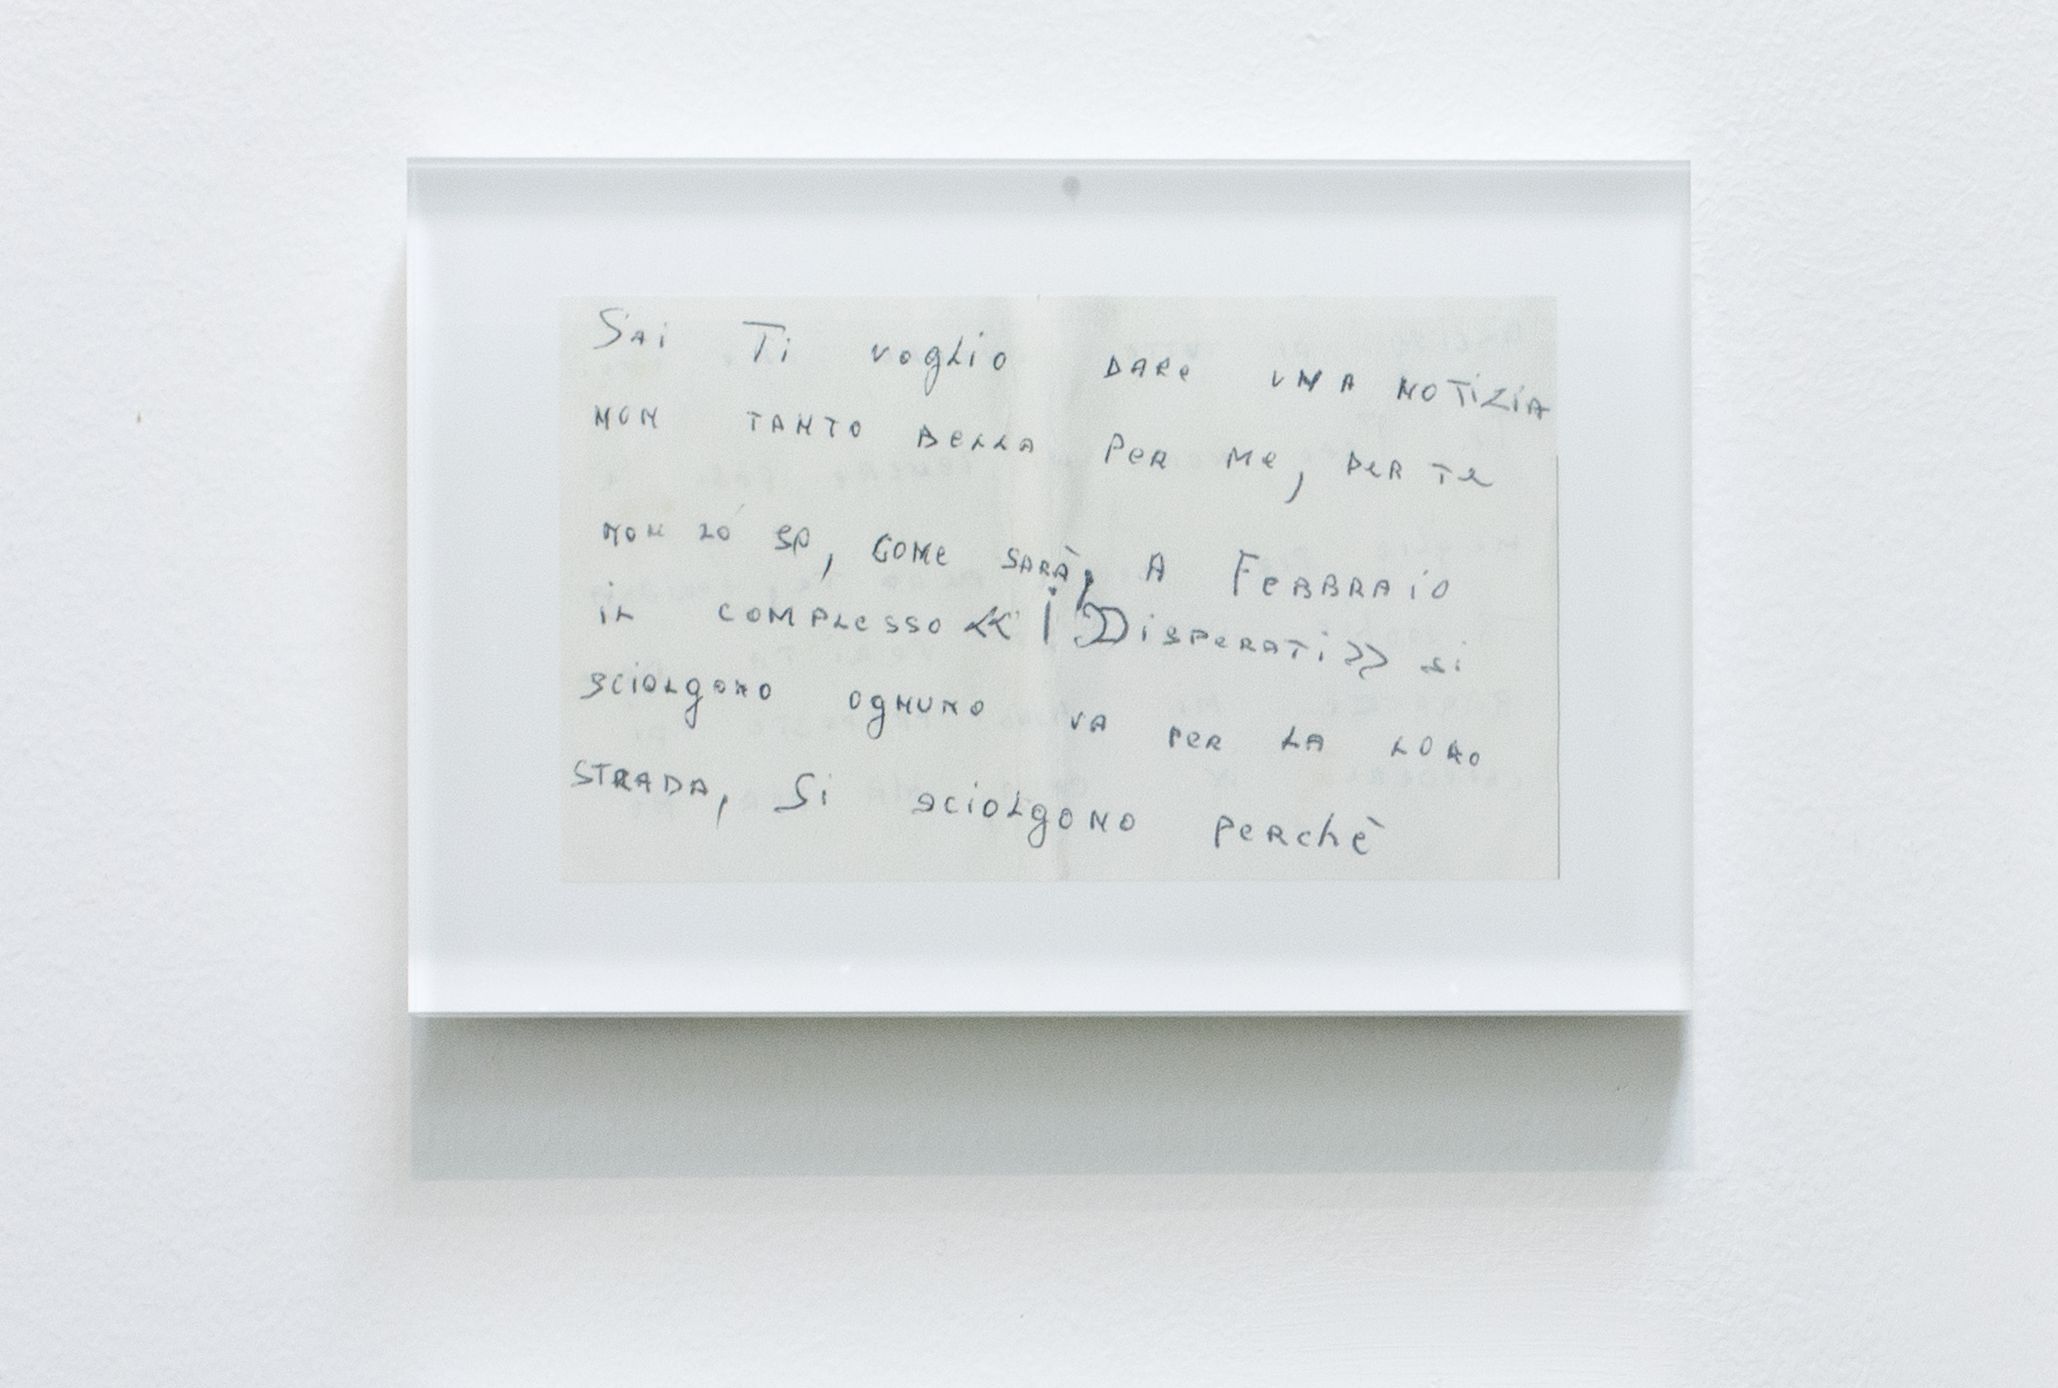 Sai Ti voglio dare una notizia
non tanto bella per me, per te
non lo so, come sarà, a Febbraio
il complesso << i Disperati >> si
sciolgono ognuno va per la loro
strada, Si sciolgono perchè